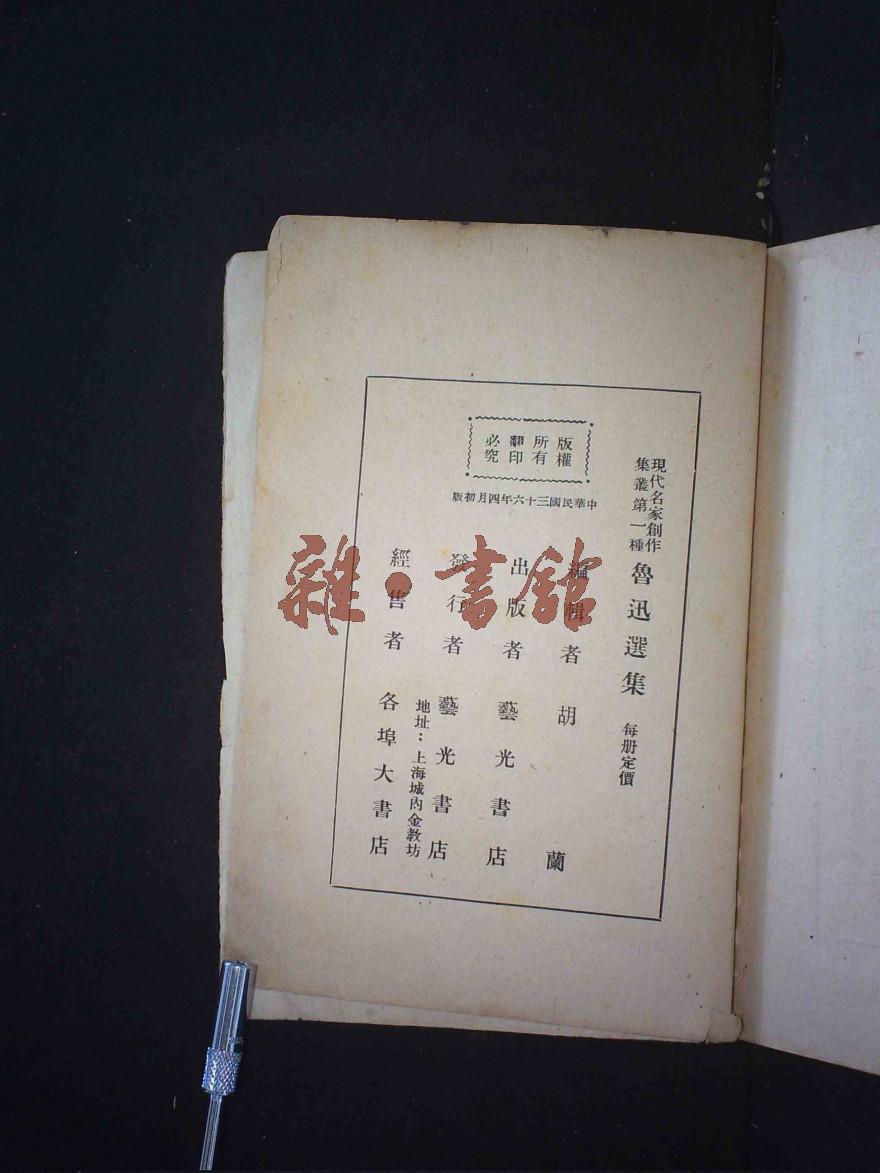 現代名家創作
集叢第一種
魯迅選集
每册定價
版權
所有
翻印
必究
中華民國三十六年四月初版
編輯者 胡蘭
出版者 藝光書店
發行者 藝光書店
地址：上海城內金教坊
經售者 各埠大書店
雜·書館